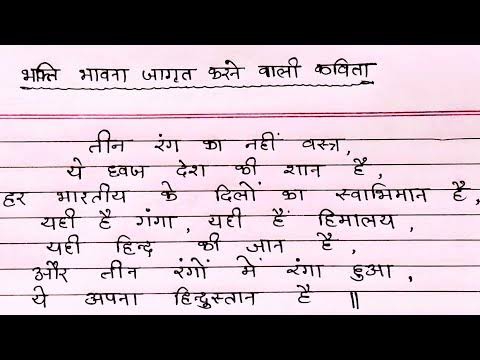 भक्ति भावना जागृत करने वाली कविता
तीन रंग का नहीं वस्त्र,
ये ध्वज देश की शान है,
हर भारतीय के दिलों का स्वाभिमान है,
यही है गंगा, यही हैं हिमालय,
यही हिन्द की जान है,
और तीन रंगों में रंगा हुआ,
ये अपना हिन्दुस्तान है ॥